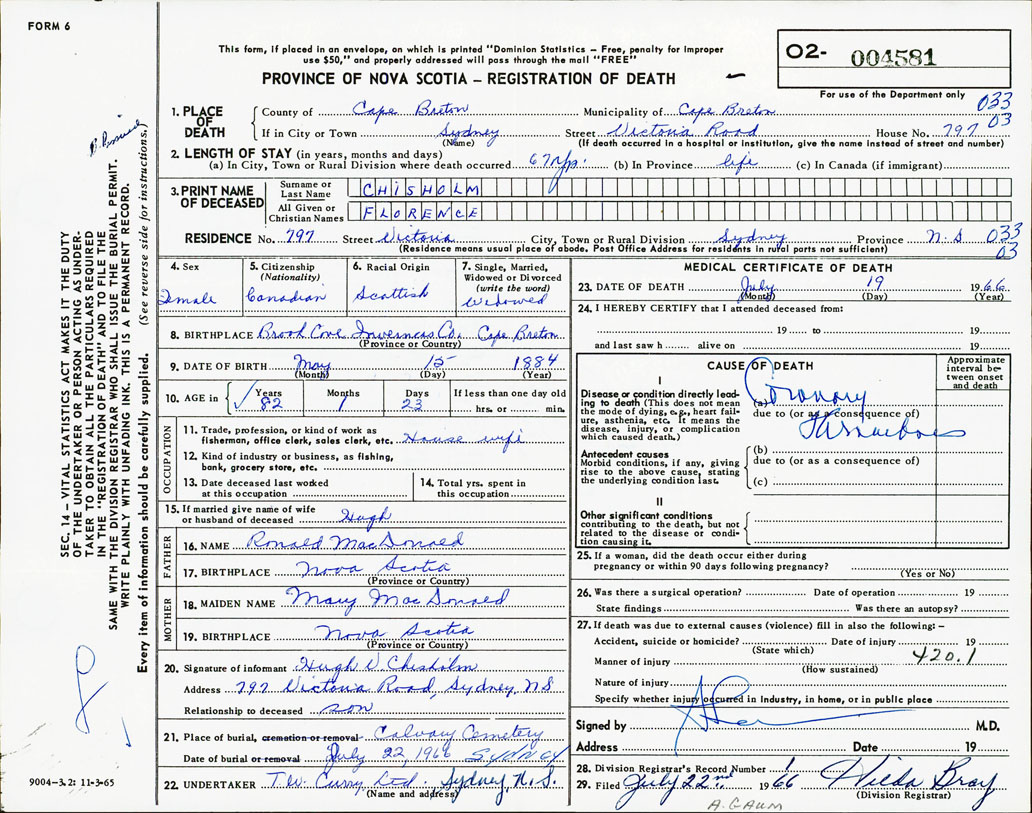 FORM 6
This form, if placed in an envelope, on which is printed "Dominion Statistics – Free, penalty for improper
use $50," and properly addressed will pass through the mail "FREE"
PROVINCE OF NOVA SCOTIA – REGISTRATION OF DEATH
O2- 004581
For use of the Department only
033
03
1. PLACE OF DEATH
County of Cape Breton Municipality of Cape Breton
If in City or Town Sydney Street Victoria Road House No. 797
(Name) (If death occurred in a hospital or institution, give the name instead of street and number)
2. LENGTH OF STAY (in years, months and days)
(a) In City, Town or Rural Division where death occurred 67 yrs. (b) In Province life (c) In Canada (if immigrant)
3. PRINT NAME OF DECEASED
Surname or Last Name CHISHOLM
All Given or Christian Names FLORENCE
RESIDENCE No. 797 Street Victoria City, Town or Rural Division Sydney Province N.S 033
(Residence means usual place of abode. Post Office Address for residents in rural parts not sufficient) 03
4. Sex
Female
5. Citizenship
(Nationality)
Canadian
6. Racial Origin
Scottish
7. Single, Married,
Widowed or Divorced
(write the word)
Widowed
8. BIRTHPLACE Broad Cove, Inverness Co., Cape Breton
(Province or Country)
9. DATE OF BIRTH May 15 1884
(Month) (Day) (Year)
10. AGE in Years Months Days If less than one day old
82 1 23 hrs. or min.
OCCUPATION
11. Trade, profession, or kind of work as
fisherman, office clerk, sales clerk, etc. House wife
12. Kind of industry or business, as fishing,
bank, grocery store, etc.
13. Date deceased last worked
at this occupation
14. Total yrs. spent in
this occupation
15. If married give name of wife
or husband of deceased Hugh
FATHER
16. NAME Ronald MacDonald
17. BIRTHPLACE Nova Scotia
(Province or Country)
MOTHER
18. MAIDEN NAME Mary MacDonald
19. BIRTHPLACE Nova Scotia
(Province or Country)
20. Signature of informant Hugh D Chisholm
Address 797 Victoria Road, Sydney, NS
Relationship to deceased son
21. Place of burial, cremation or removal Calvary Cemetery
Date of burial or removal July 22, 1966 SYDNEY
22. UNDERTAKER T.W. Curry Ltd. Sydney, N.S.
(Name and address)
MEDICAL CERTIFICATE OF DEATH
23. DATE OF DEATH July 19 1966
(Month) (Day) (Year)
24. I HEREBY CERTIFY that I attended deceased from:
19 to 19
and last saw h alive on 19
CAUSE OF DEATH
Approximate
interval be-
tween onset
and death
I
Disease or condition directly lead-
ing to death (This does not mean
the mode of dying, e.g., heart fail-
ure, asthenia, etc. It means the
disease, injury, or complication
which caused death.)
(a) Coronary
due to (or as a consequence of)
Thrombosis
Antecedent causes
Morbid conditions, if any, giving
rise to the above cause, stating
the underlying condition last.
(b)
due to (or as a consequence of)
(c)
II
Other significant conditions
contributing to the death, but not
related to the disease or condi-
tion causing it.
25. If a woman, did the death occur either during
pregnancy or within 90 days following pregnancy?
(Yes or No)
26. Was there a surgical operation? Date of operation 19
State findings Was there an autopsy?
27. If death was due to external causes (violence) fill in also the following: –
Accident, suicide or homicide? Date of injury 19
(State which)
420.1
Manner of injury
(How sustained)
Nature of injury
Specify whether injury occurred in Industry, in home, or in public place
Signed by M.D.
Address Date 19
28. Division Registrar's Record Number
29. Filed July 22nd 1966 Hilda Bray
(Division Registrar)
A. GAUM
SEC. 14 – VITAL STATISTICS ACT MAKES IT THE DUTY
OF THE UNDERTAKER OR PERSON ACTING AS UNDER-
TAKER TO OBTAIN ALL THE PARTICULARS REQUIRED
IN THE "REGISTRATION OF DEATH" AND TO FILE THE
SAME WITH THE DIVISION REGISTRAR WHO SHALL ISSUE THE BURIAL PERMIT.
WRITE PLAINLY WITH UNFADING INK. THIS IS A PERMANENT RECORD.
Every item of information should be carefully supplied. (See reverse side for instructions.)
9004-3.2: 11-3-65